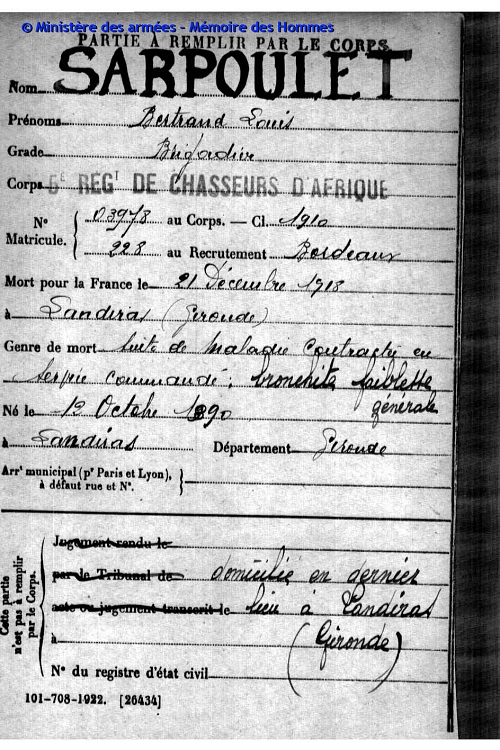 © Ministère des armées - Mémoire des Hommes
PARTIE À REMPLIR PAR LE CORPS
Nom SARPOULET
Prénoms Bertrand Louis
Grade Brigadier
Corps 5e REGt DE CHASSEURS D'AFRIQUE
No 03978 au Corps. — Cl. 1910
Matricule. 228 au Recrutement Bordeaux
Mort pour la France le 21 Décembre 1918
à Landiras (Gironde)
Genre de mort Suite de Maladie Contractée en
servie commandé ; bronchite faiblesse
générale
Né le 12 Octobre 1890
à Landiras Département Gironde
Arrt municipal (pr Paris et Lyon),
à défaut rue et No.
Cette partie
n'est pas à remplir
par le Corps.
Jugement rendu le
par le Tribunal de domicilié en dernier
acte ou jugement transcrit le lieu à Landiras
à (Gironde)
No du registre d'état civil
101-708-1922. [26434]